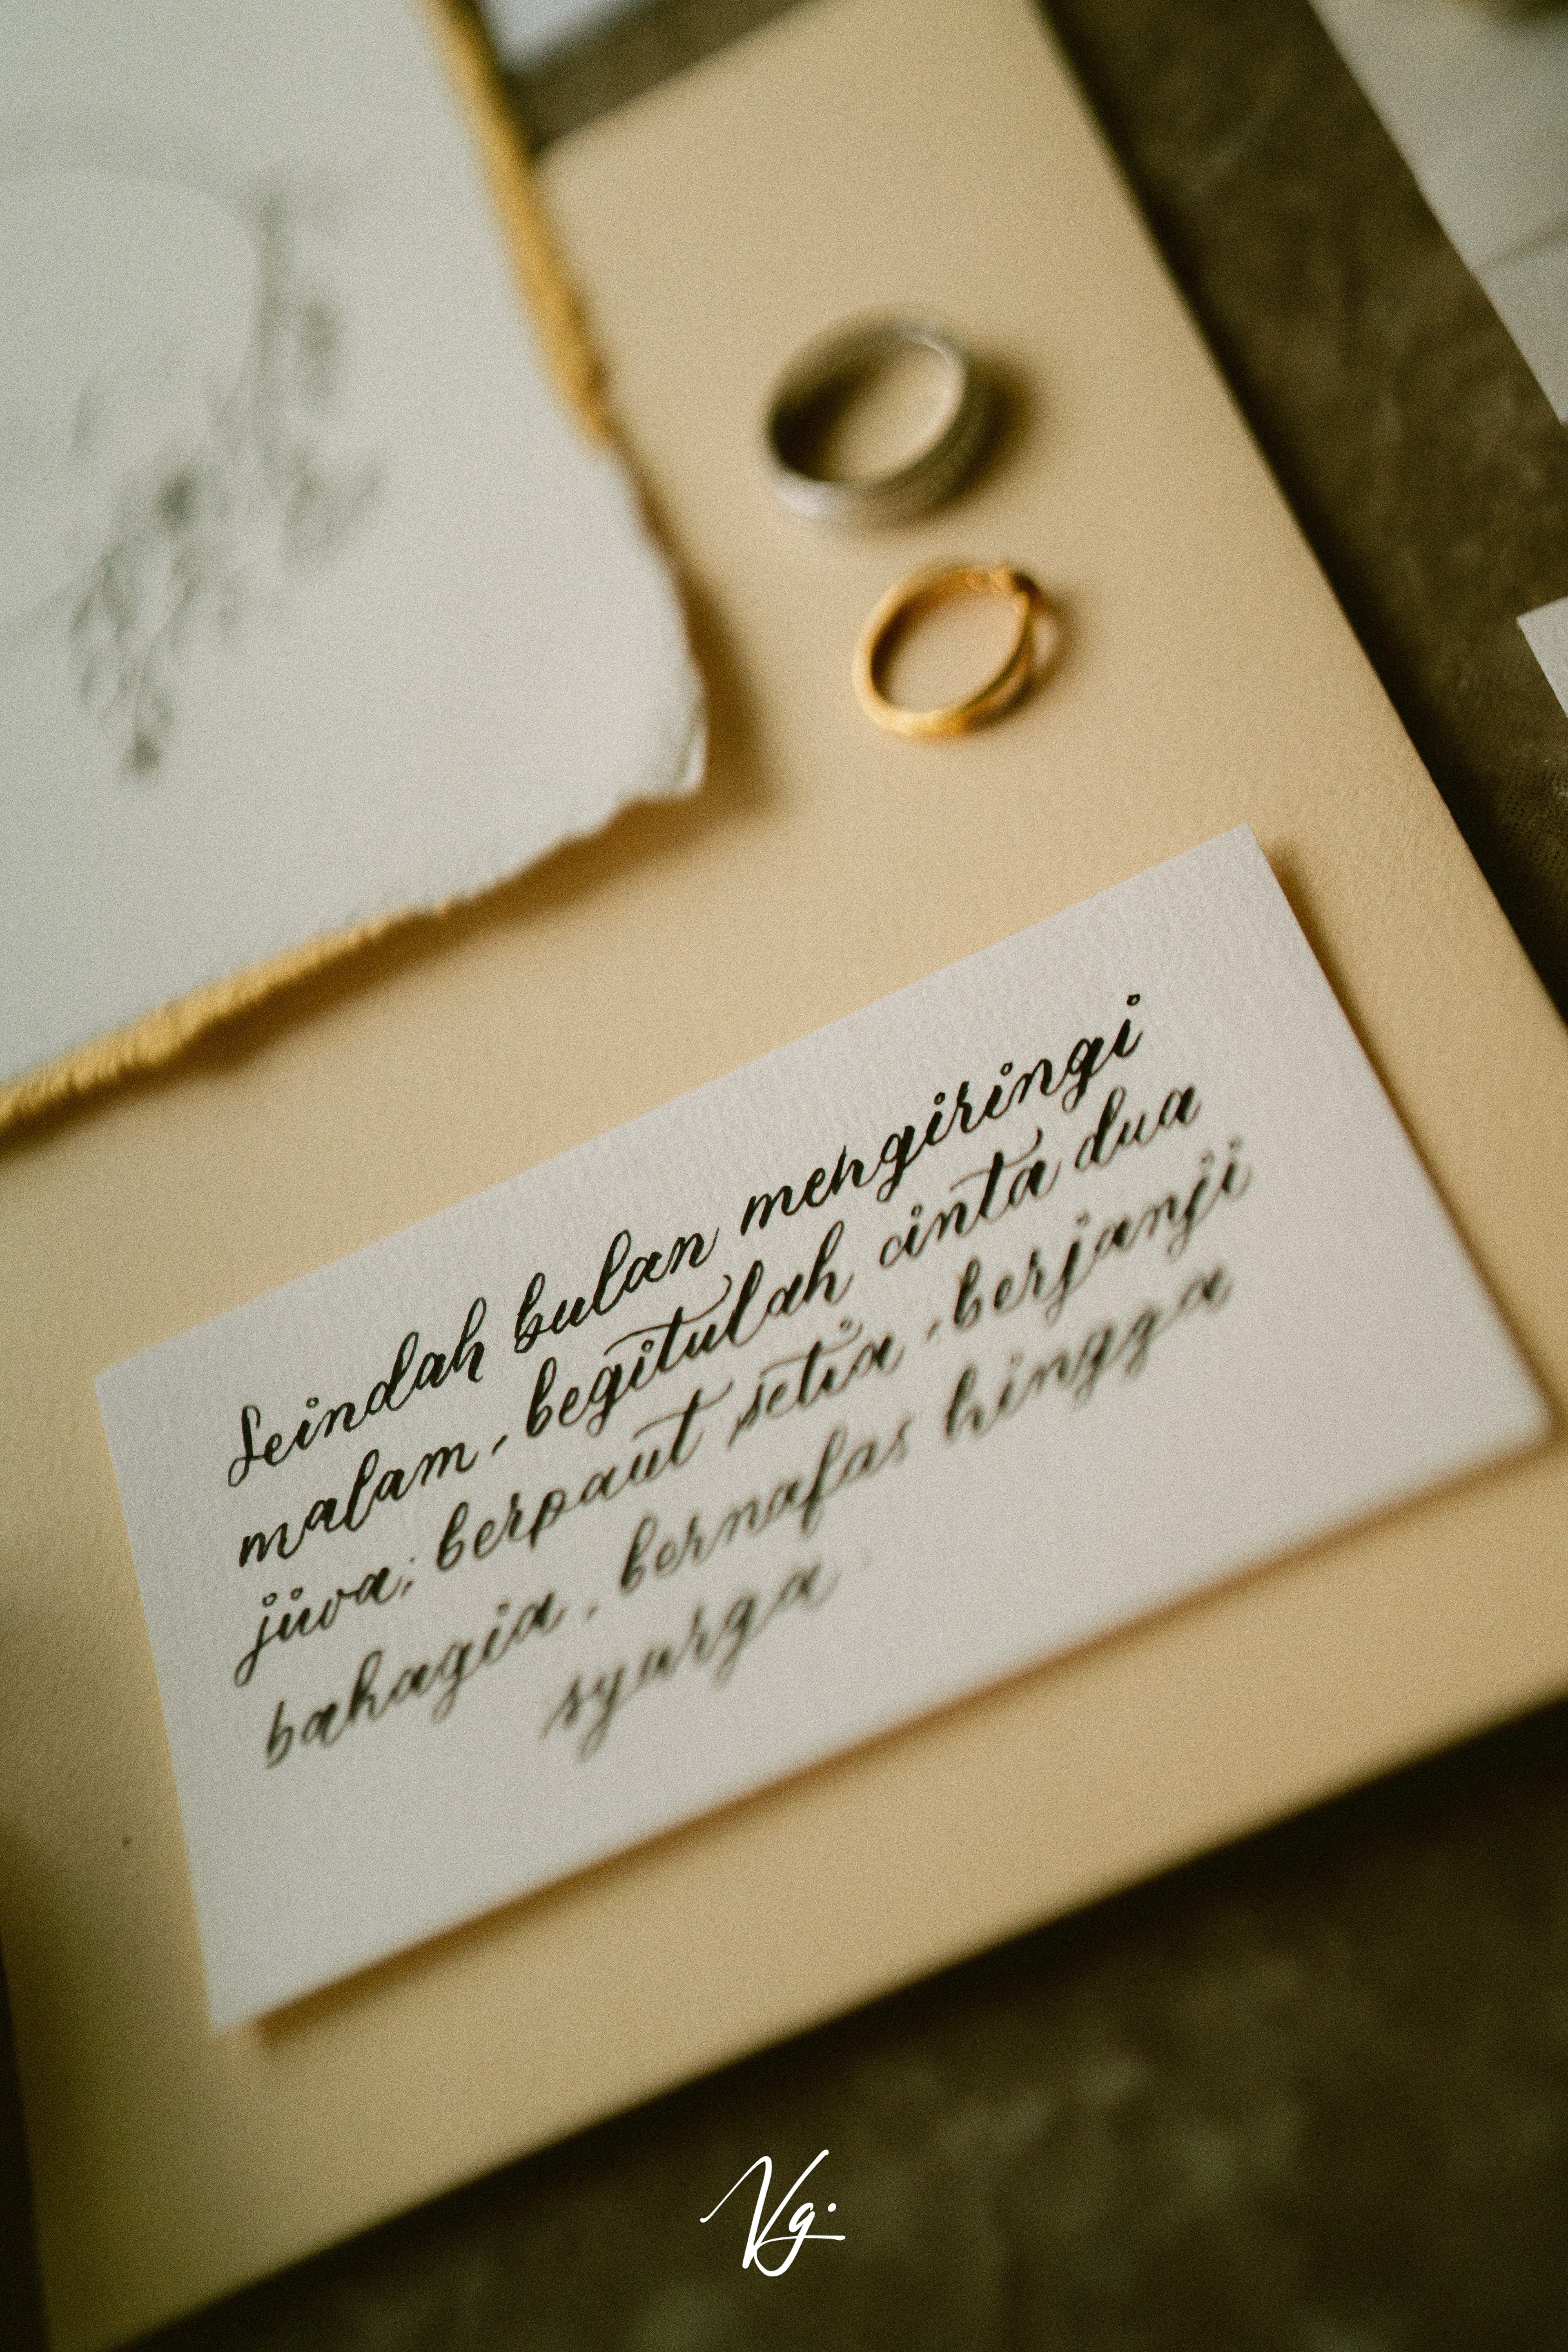 Seindah bulan mengiringi
malam, begitulah cinta dua
jiwa; berpaut setia, berjanji
bahagia, bernafas hingga
syurga.
Vg.